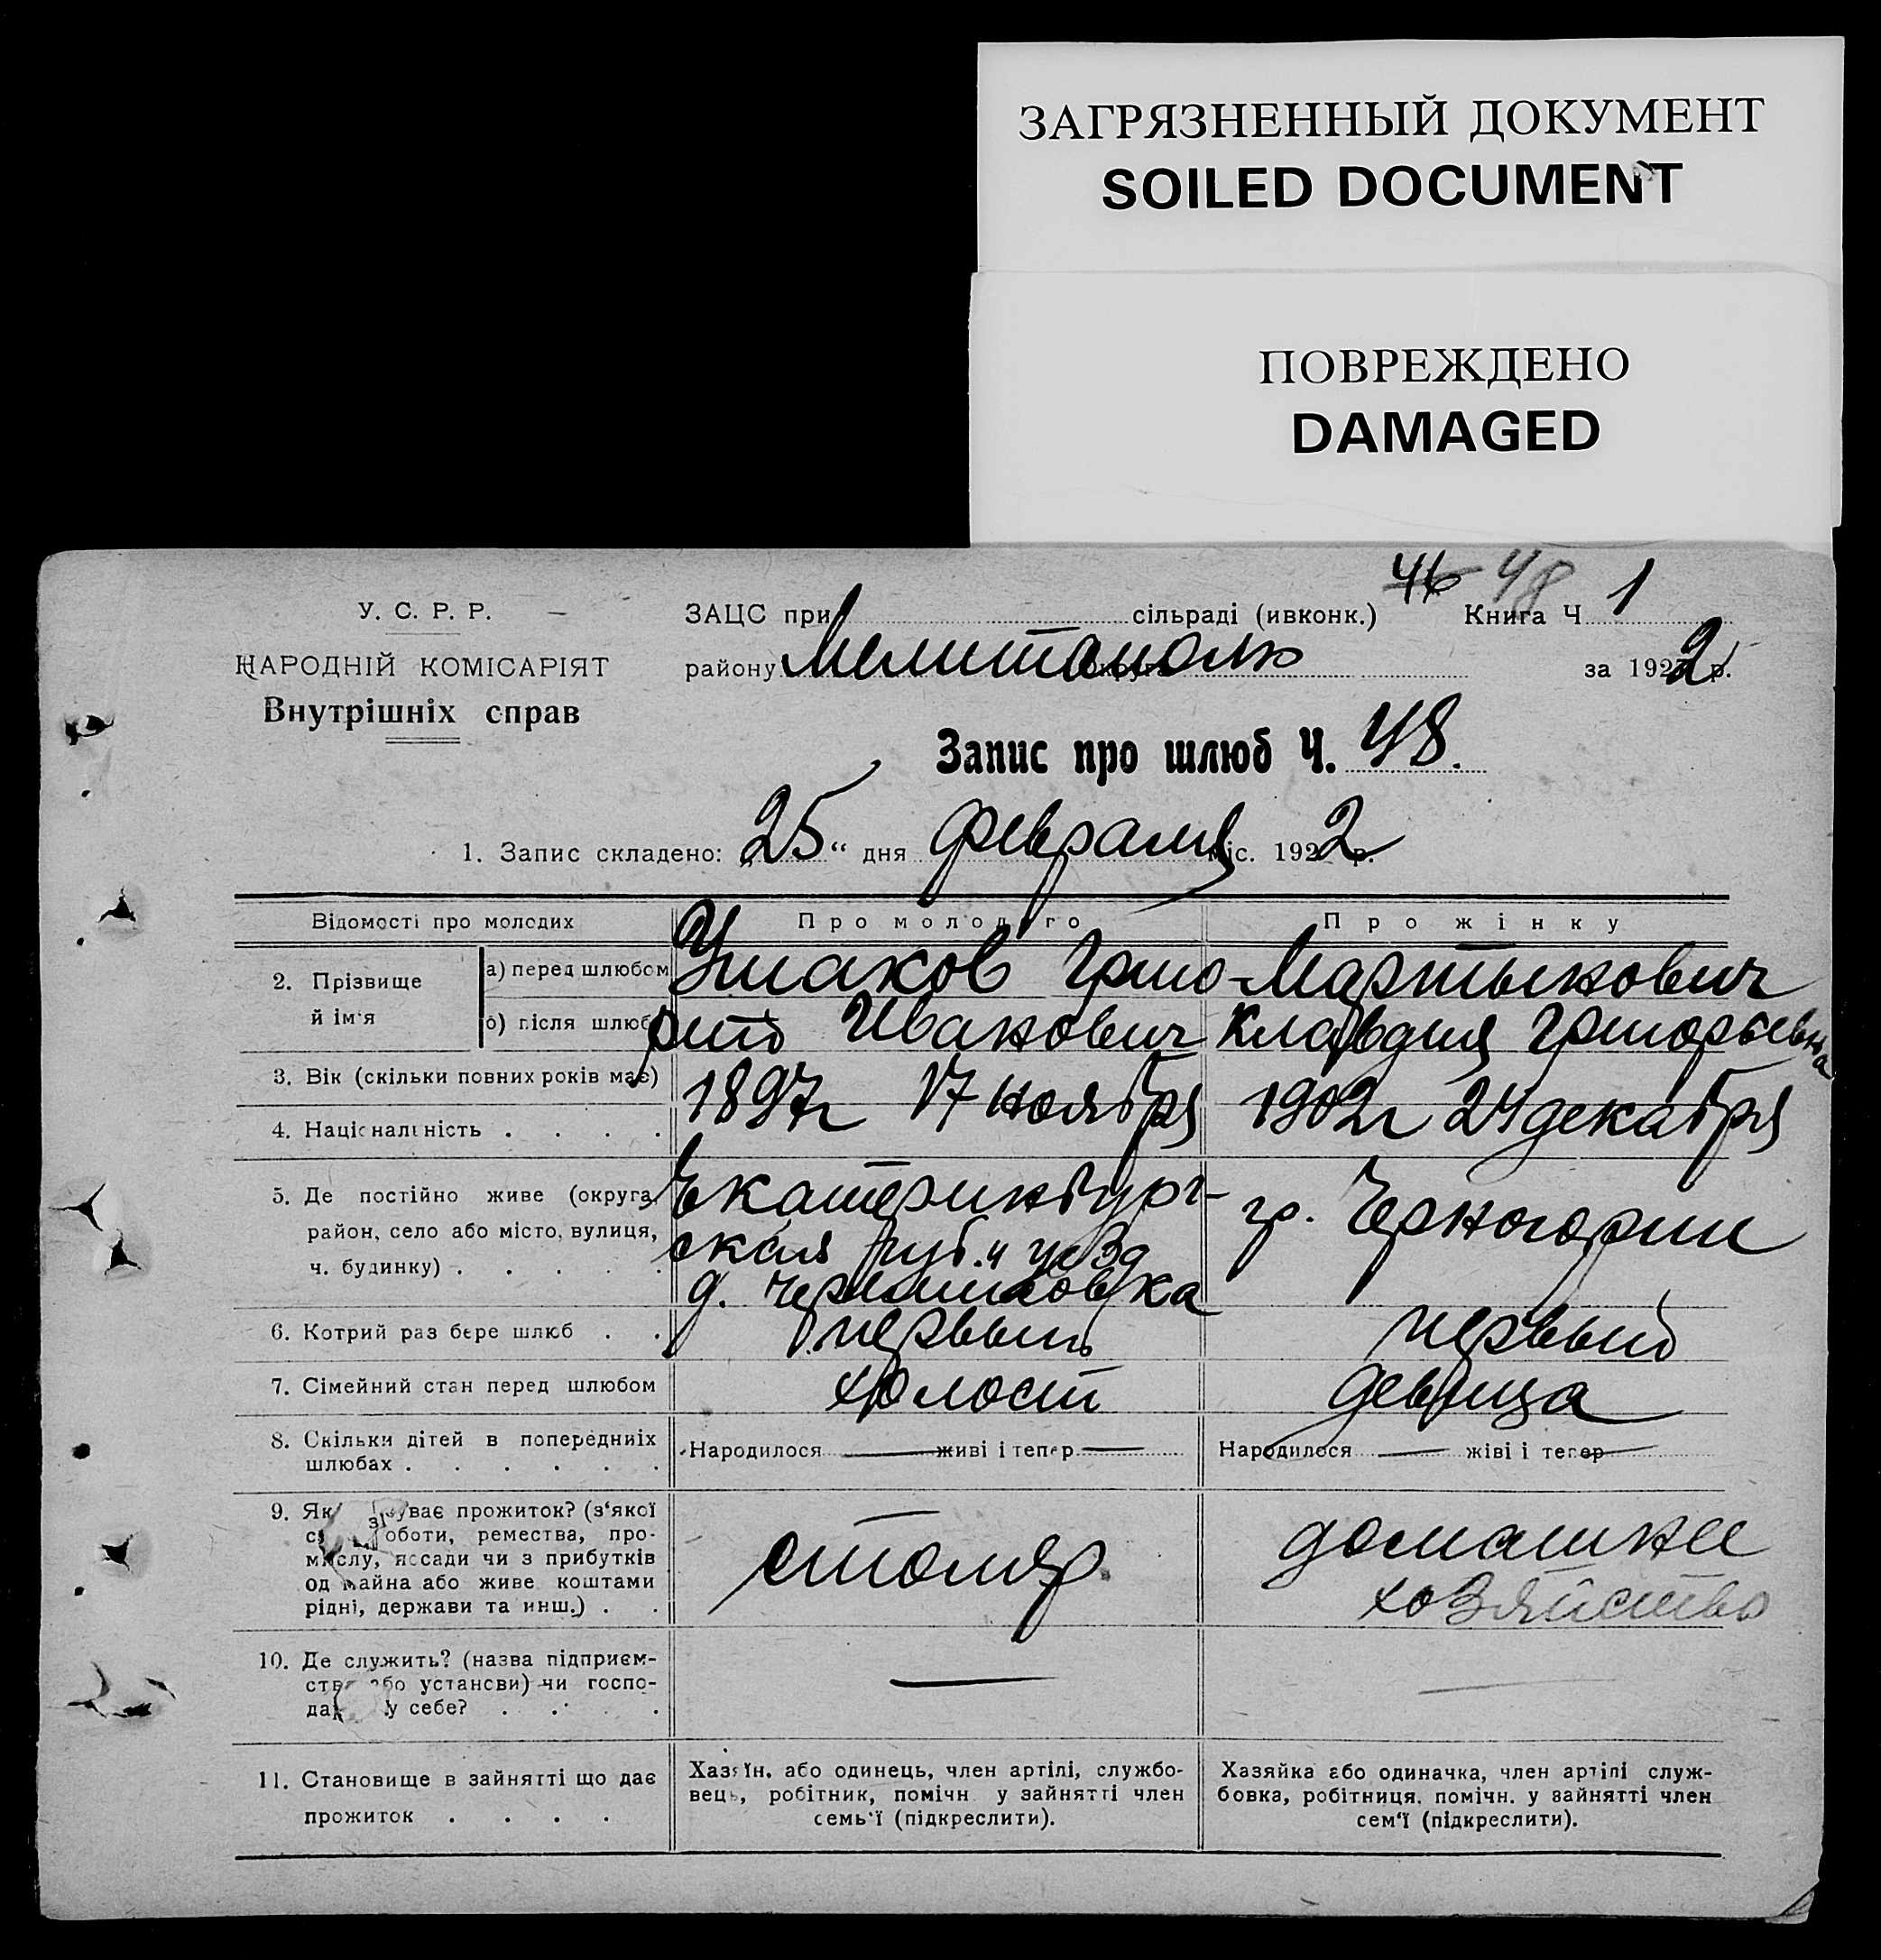 ЗАГРЯЗНЕННЫЙ ДОКУМЕНТ
SOILED DOCUMENT
ПОВРЕЖДЕНО
DAMAGED
46 48
У. С. Р. Р.
ЗАЦС при сільраді (ивконк.) Книга Ч 1
НАРОДНІЙ КОМІСАРІЯТ
району Мелитополь за 1922 р.
Внутрішніх справ
Запис про шлюб Ч. 48.
1. Запис складено: „25“ дня февраля міс. 1922 р.
Відомості про молодих
Про молодого
Про жінку
2. Прізвище й ім'я
а) перед шлюбом
б) після шлюбу
Ушаков Григо-
рий Иванович
Мартынович
Клавдия Григорьевна
3. Вік (скільки повних років має)
1897г 17 ноября
1902г 24 декабря
4. Національність . . . .
5. Де постійно живе (округа,
район, село або місто, вулиця,
ч. будинку) . . . . .
Екатеринбург-
ская губ. и уезд
д.
гр. Черногории
6. Котрий раз бере шлюб . .
первый
первый
7. Сімейний стан перед шлюбом
холост
девица
8. Скільки дітей в попередниіх
шлюбах . . . . . .
Народилося — живі і тепер —
Народилося — жіві і тепер —
9. Як ває прожиток? (з'якої
оботи, ремества, про-
мислу, пссади чи з прибутків
од майна або живе коштами
рідні, держави та инш.) . .
столяр.
домашнее
хозяйство
10. Де служить? (назва підприєм-
ства або установи) чи госпо-
дар у себе? . . . .
—
—
11. Становище в зайнятті що дає
прожиток . . . .
Хазяїн, або одинець, член артілі, службо-
вець, робітник, помічн у зайнятті член
семь'ї (підкреслити).
Хазяйка або одиначка, член артілі служ-
бовка, робітниця, помічн. у зайнятті член
сем'ї (підкреслити).